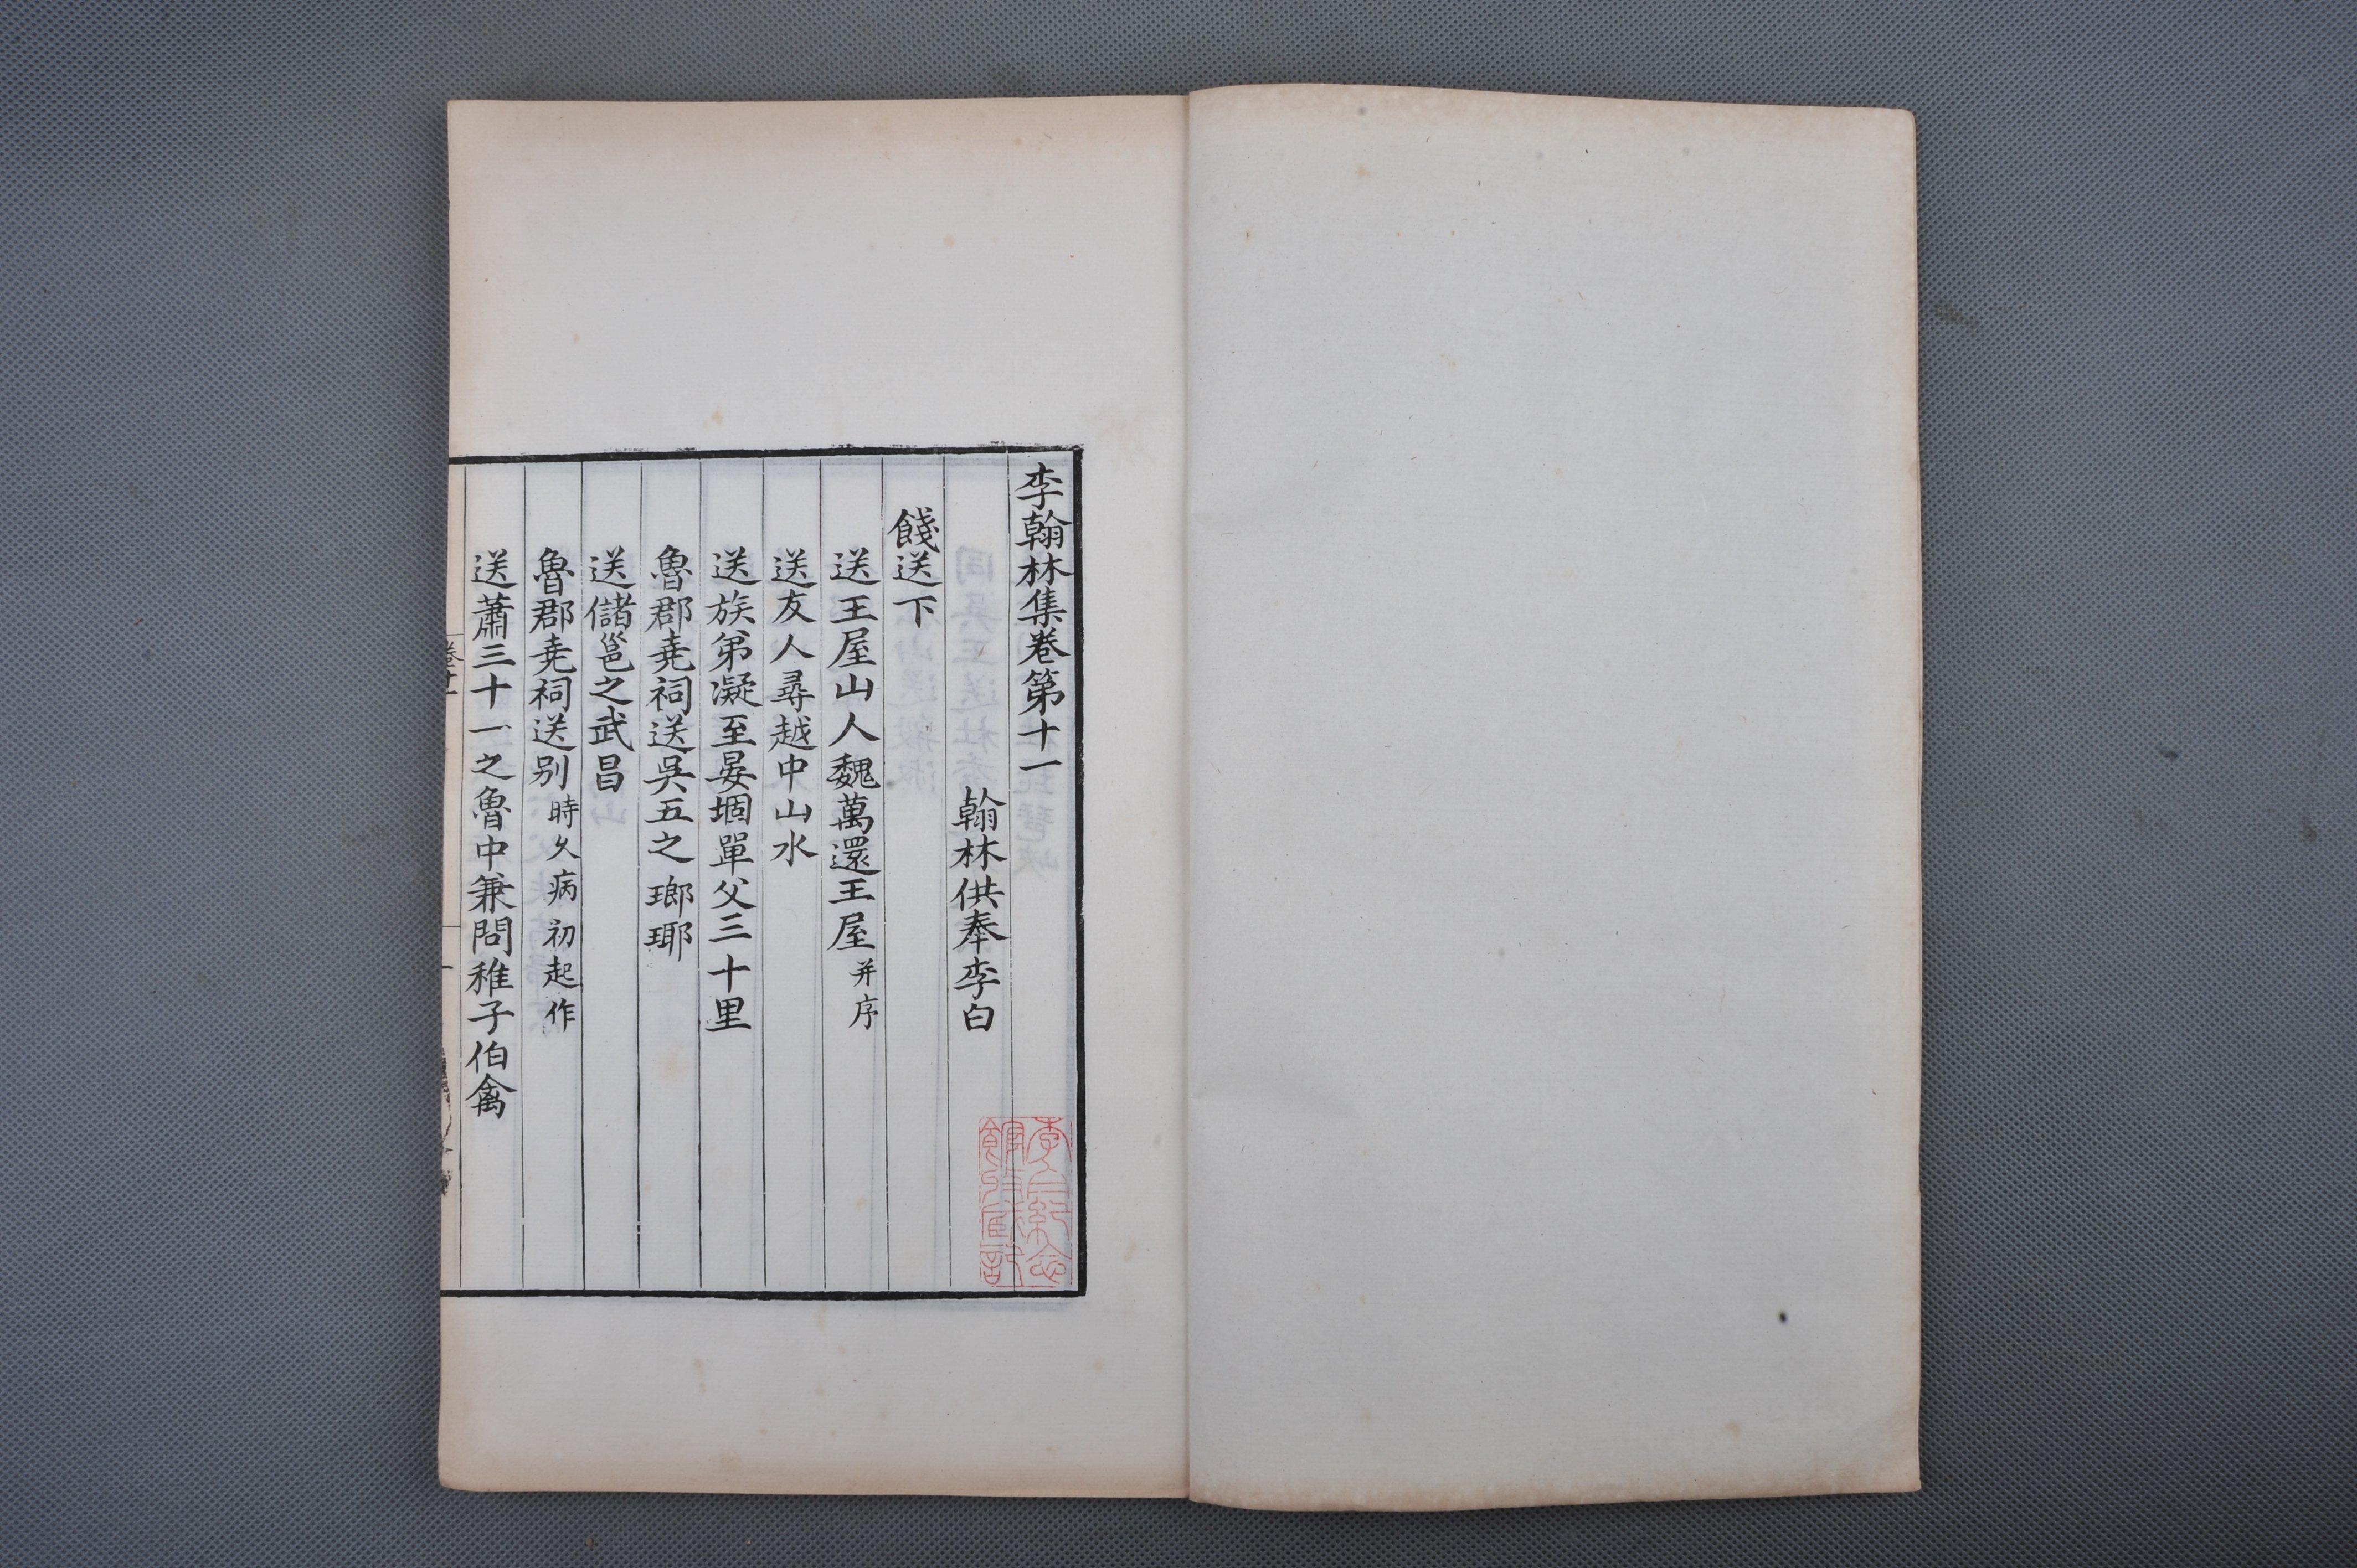 李翰林集卷第十一
翰林供奉李白
餞送下
送王屋山人魏萬還王屋并序
送友人尋越中山水
送族弟凝至晏堌單父三十里
魯郡堯祠送吳五之瑯琊
送儲邕之武昌
魯郡堯祠送別時久病初起作
送蕭三十一之魯中兼問稚子伯禽
卷十一
一
李白紀念
館有